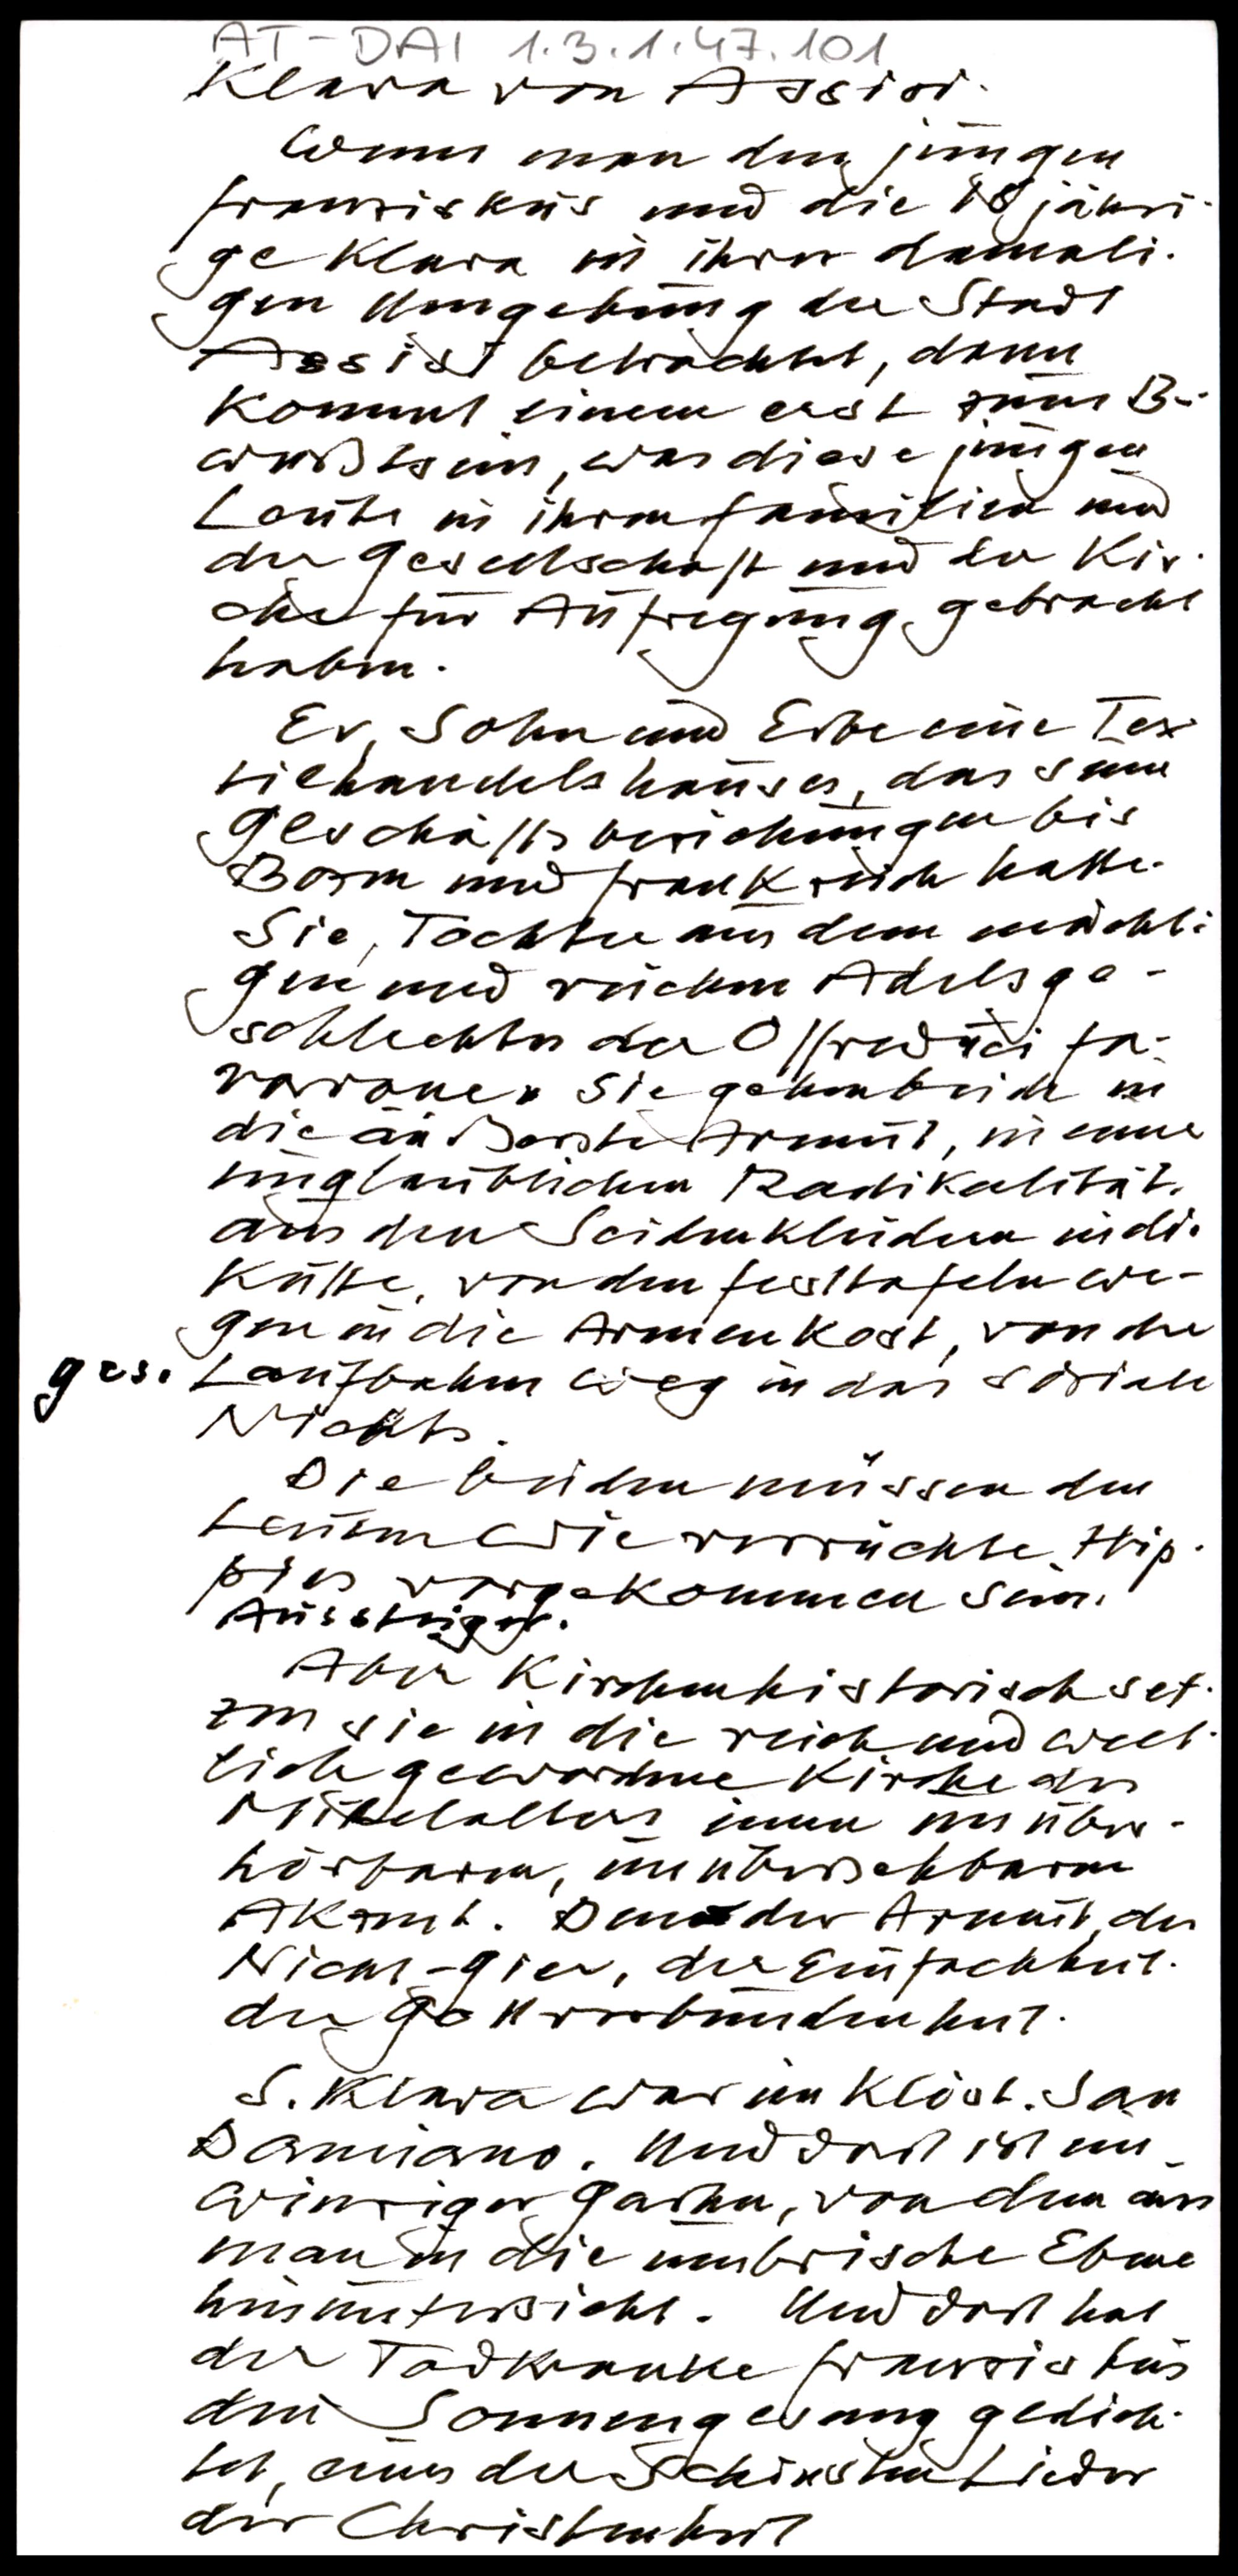 AT-DAI 1.3.1.47.101
Klara von Assisi.
Wenn man den jungen
Franziskus und die 18 jähri-
ge Klara in ihrer damali-
gen Umgebung der Stadt
Assisi betrachtet, dann
kommt einem erst zum Be-
wußtsein, was diese jungen
Leute in ihren Familien und
der Gesellschaft und der Kir-
che für Aufregung gebracht
haben.
Er, Sohn und Erbe eines Tex-
tilhandelshauses, das seine
Geschäftsbeziehungen bis
und Frankreich hatte.
Sie, Tochter aus dem mächti-
gen und reichen Adelsge-
schlechter der Offreducci Fa-
varone. Sie gehen beide in
die äußerste Armut, in einer
unglaublichen Radikalität.
aus den Seidenkleidern in die
Kutte, von den Festtafeln we-
gen in die Armenkost, von der
ges. Laufbahn weg in das soziale
Nichts.
Die beiden müssen den
Leuten wie verrückte Hip-
pies vorgekommen sein.
Aussteiger.
Aber Kirchenhistorisch set-
zen sie in die reich und welt-
lich gewordene Kirche des
Mittelalters einen unüber-
hörbaren, unübersehbaren
Akzent. Den der Armut, der
Nicht-gier, der Einfachheit.
der Gottverbundenheit.
S. Klara war im Klost. San
Damiano. Und dort ist ein
winziger Garten, von dem aus
man in die umbrische Ebene
hinuntersieht. Und dort hat
der Todkranke Franziskus
den Sonnengesang gedich-
tet, eines der Schönsten Lieder
der Christenheit